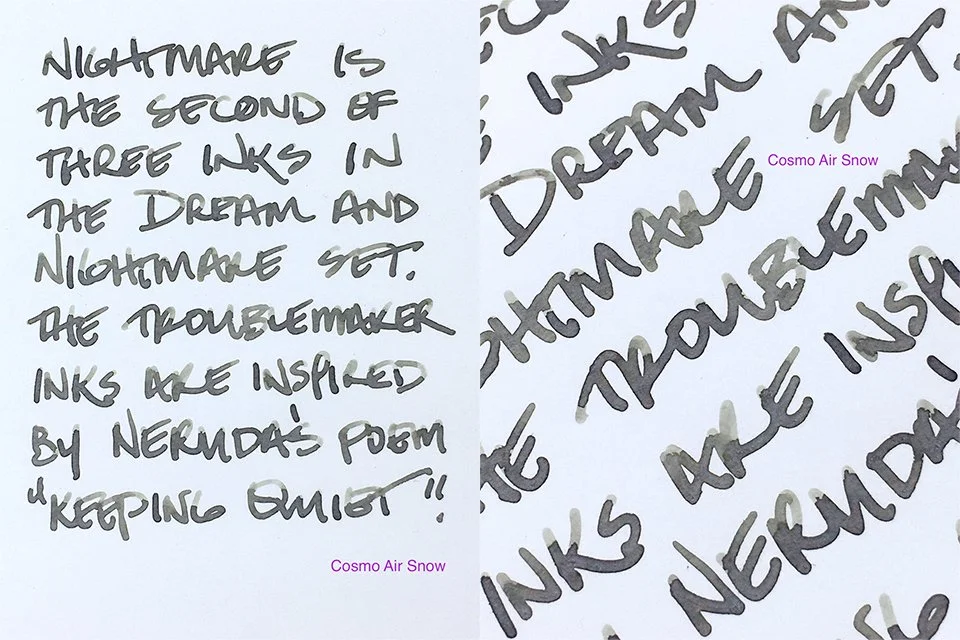 NIGHTMARE IS
THE SECOND OF
THREE INKS IN
THE DREAM AND
NIGHTMARE SET.
THE TROUBLEMAKER
INKS ARE INSPIRED
BY NERUDA'S POEM
"KEEPING QUIET".
Cosmo Air Snow
INKS
DREAM AN
HTMARE SET
Cosmo Air Snow
HE TROUBLEMA
INKS ARE INSPI
NERUDA